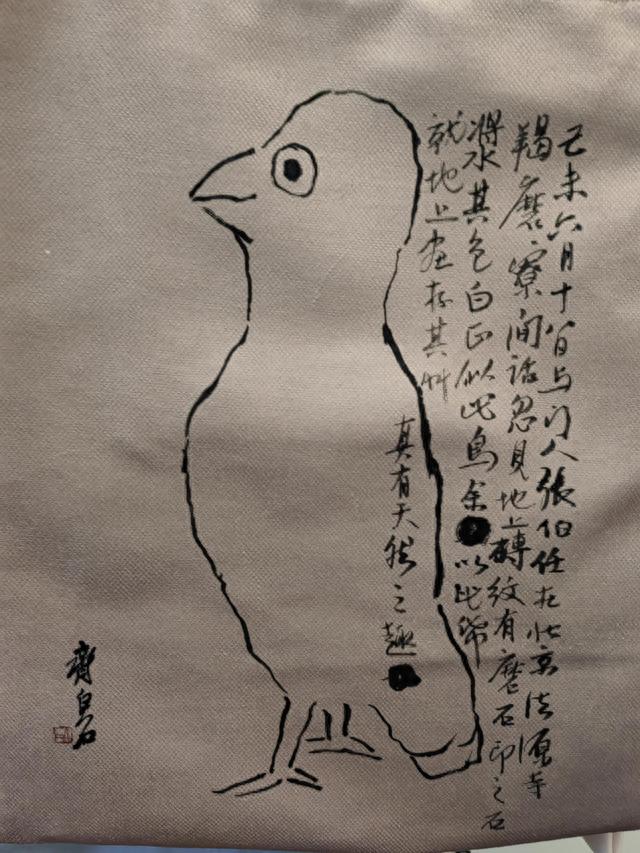 己未六月十八日与门人張伯任在北京法源寺
羯磨寮閒話忽見地上磚紋有磨石印之石
漿水其色白正似此鳥余以此紙
就地上画存其艸
真有天然之趣
齊白石